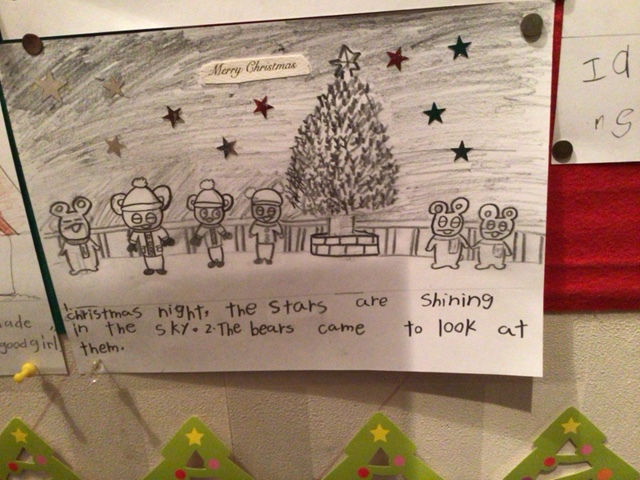 Merry Christmas
1. christmas night, the stars are shining
in the sky. 2. The bears came to look at
them.
good girl
I